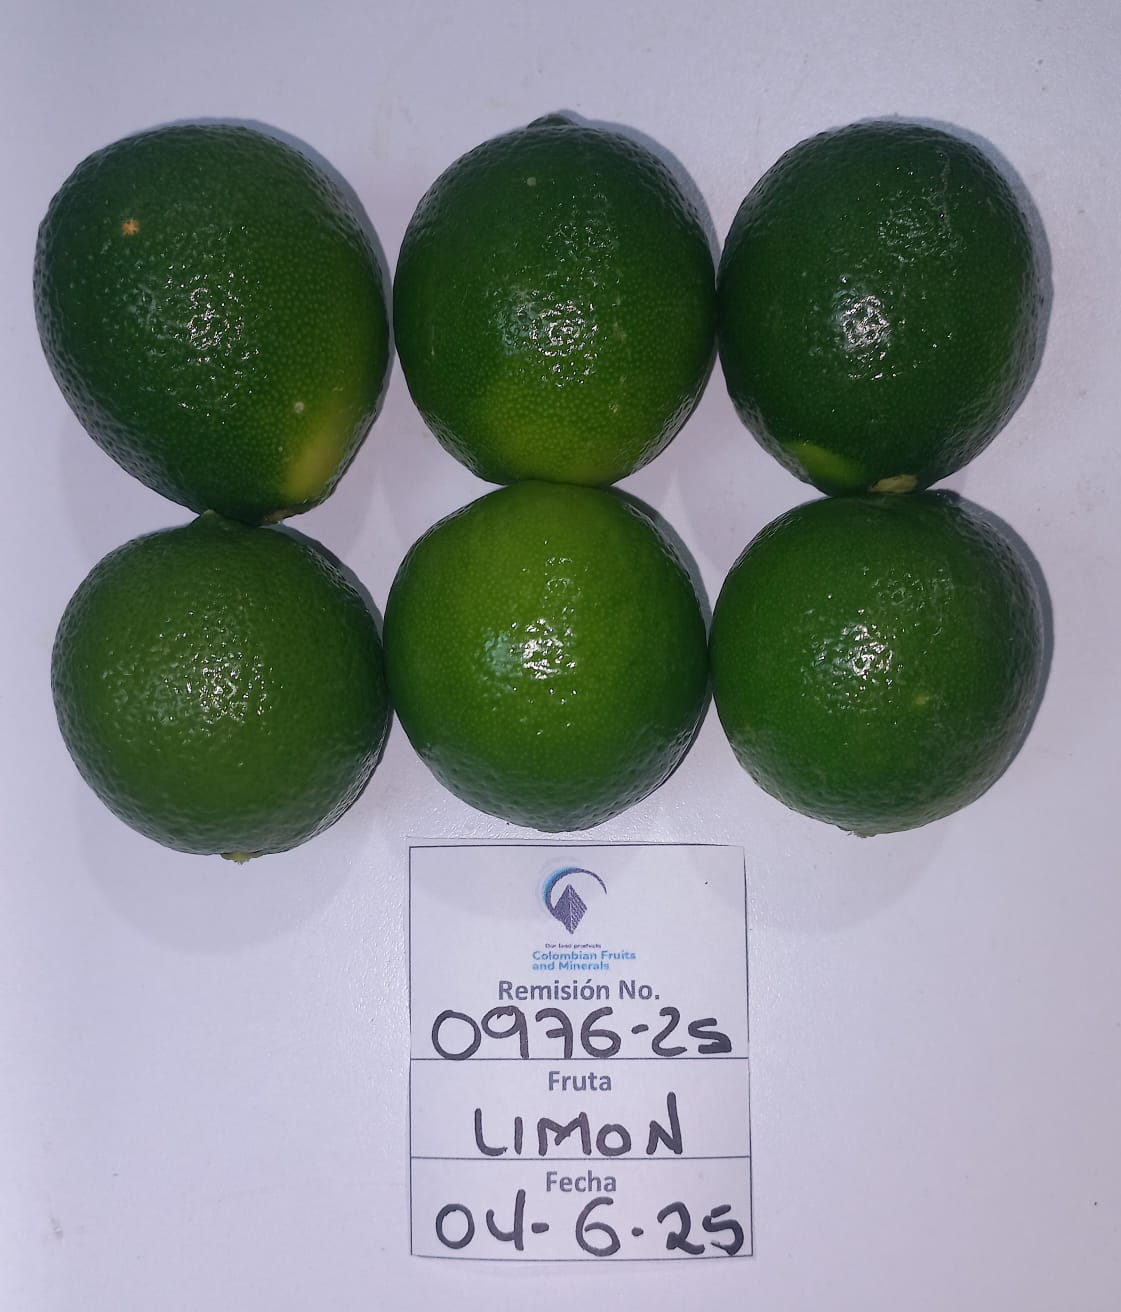 Our land products
Colombian Fruits
and Minerals
Remisión No.
0976-25
Fruta
LIMON
Fecha
04-6-25